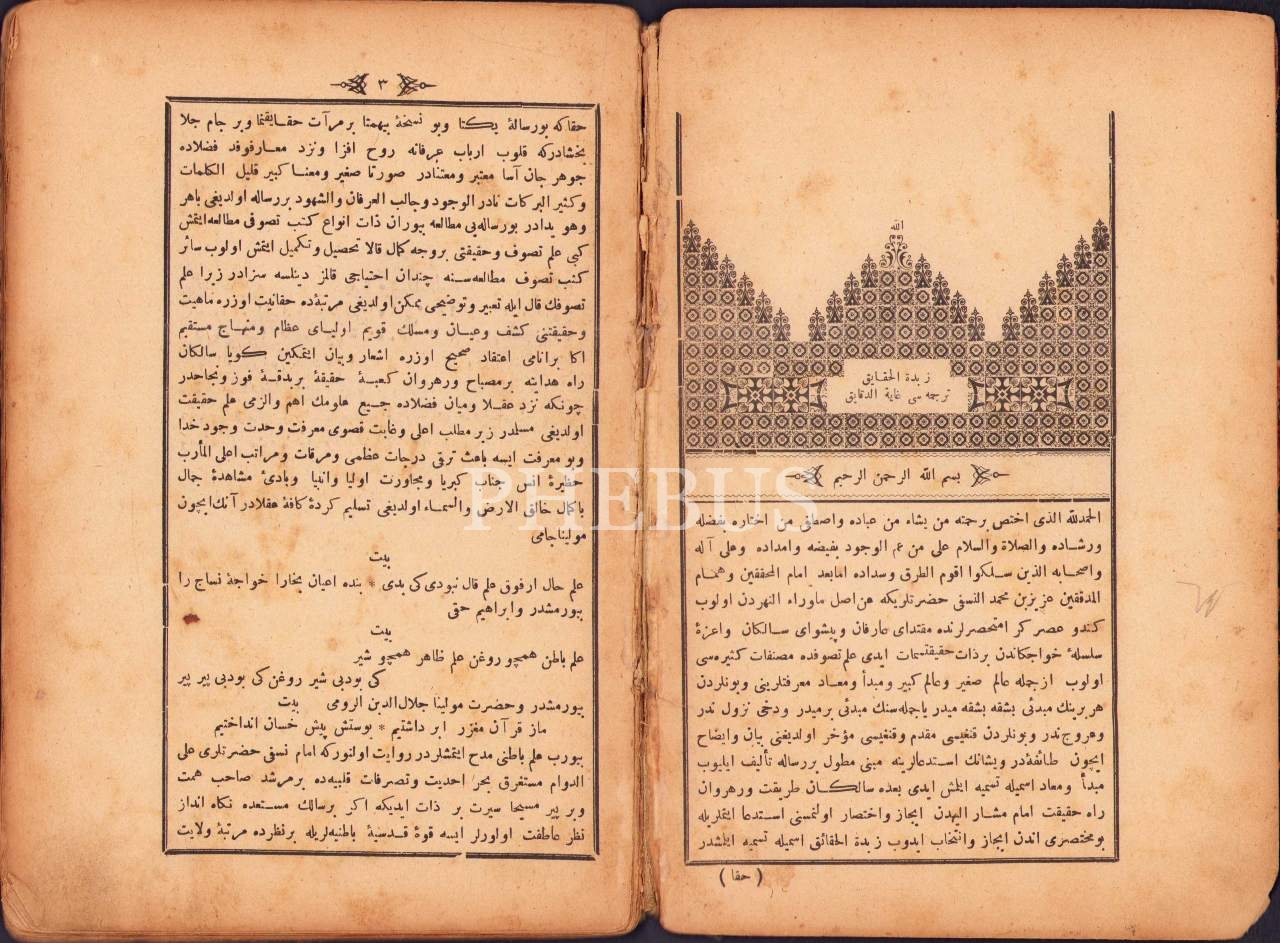 الله
زبدة الحقايق
ترجمه سى غاية الدقايق
بسم الله الرحمن الرحيم
الحمدلله الذى اختص برحمته من يشاء من عباده واصطفى من اختاره بفضله
ورشاده والصلاة والسلام على من عم الوجود بفيضه وامداده وعلى آله
واصحابه الذين سلكوا اقوم الطرق وسداده امابعد امام المحققين وهمام
المدققين عزيز بن محمد النسفى حضرتلريكه عن اصل ماوراء النهردن اولوب
كندو عصر كر امنحصرلرنده مقتداى عارفان وپيشواى سالكان واعزة
سلسلهٔ خواجكاندن برذات حقيقتسمات ايدى علم تصوفده مصنفات كثيره سى
اولوب ازجمله عالم صغير وعالم كبير ومبدأ ومعاد معرفتلرينى وبونلردن
هربرينك مبدئى بشقه بشقه ميدر ياجمله سنك مبدئى برميدر ودخى نزول ندر
وعروج ندر وبونلردن قنغيسى مقدم وقنغيسى مؤخر اولديغنى بيان وايضاح
ايچون طائفهٔ درويشانك استدعالرينه مبنى مطول بررساله تأليف ايليوب
مبدأ ومعاد اسميله تسميه ايلمش ايدى بعده سالكان طريقت ورهروان
راه حقيقت امام مشار اليهدن ايجاز واختصار اولنمسنى استدعا ايتملريله
بومختصرى اندن ايجاز وانتخاب ايدوب زبدة الحقائق اسميله تسميه ايلمشدر
( حقا )
٣
حقاكه بورسالهٔ يكتا وبو نسخهٔ بيهمتا برمرآت حقايقنما وبر جام جلا
بخشادركه قلوب ارباب عرفانه روح افزا ونزد معارفوفد فضلاده
جوهر جان آسا معتبر ومعتنادر صورتا صغير ومعنا كبير قليل الكلمات
وكثير البركات نادر الوجود وجالب العرفان والشهود بررساله اولديغى باهر
وهويدادر بورساله يى مطالعه بيوران ذات انواع كتب تصوفى مطالعه ايتمش
كبى علم تصوف وحقيقتى بروجه كمال قالا تحصيل وتكميل ايتمش اولوب سائر
كتب تصوف مطالعه سنه چندان احتياجى قالمز دينلسه سزادر زيرا علم
تصوفك قال ايله تعبير وتوضيحى ممكن اولديغى مرتبه ده حقانيت اوزره ماهيت
وحقيقتنى كشف وعيان ومسلك قويم اولياى عظام ومنهاج مستقيم
اكا برانامى اعتقاد صحيح اوزره اشعار وبيان ايتمكين كويا سالكان
راه هدايته برمصباح ورهروان كعبهٔ حقيقهٔ بربدقهٔ فوز ونجاحدر
چونكه نزد عقلا وميان فضلاده جميع علومك اهم والزمى علم حقيقت
اولديغى مسلمدر زير مطلب اعلى وغايت قصوى معرفت وحدت وجود خدا
وبو معرفت ايسه باعث ترقى درجات عظمى ومرقات ومراتب اعلى المأرب
حظيرهٔ انس جناب كبريا ومجاورت اوليا وانبيا وبادئ مشاهدهٔ جمال
باكمال خالق الارض والسماء اولديغى تسليم كردهٔ كافهٔ عقلادر آنك ايچون
مولينا جامى
بيت
علم حال ارفوق علم قال نبودى كى بدى * بنده اعيان بخارا خواجهٔ نساج را
بيورمشدر وابراهيم حقى
بيت
علم باطن همچو روغن علم ظاهر همچو شير
كى بودبى شير روغن كى بودبى پير پير
بيورمشدر وحضرت مولينا جلال الدين الرومى بيت
ماز قرآن مغزر ابر داشتيم * پوستش پيش خسان انداختيم
بيورب علم باطنى مدح ايتمشلدر روايت اولنوركه امام نسفى حضرتلرى على
الدوام مستغرق بحر احديت وتصرفات قلبيه ده برمرشد صاحب همت
وبر پير مسيحا سيرت بر ذات ايديكه اكر برسالك مستعده نكاه انداز
نظر عاطفت اولورلر ايسه قوهٔ قدسيهٔ باطنيه لريله برنظرده مرتبهٔ ولايت
PHEBUS